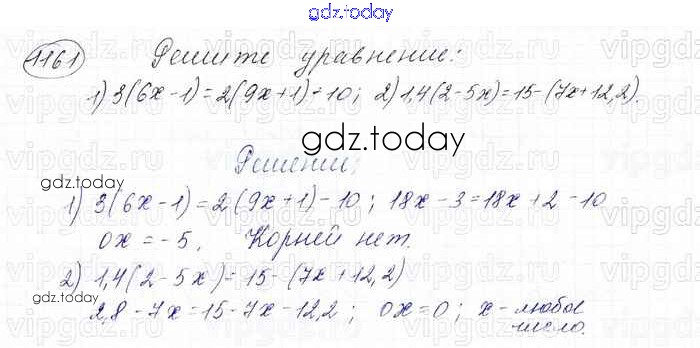 gdz.today
1161 Решите уравнение:
1) 3(6x-1)=2(9x+1)-10; 2) 1,4(2-5x)=15-(7x+12,2).
gdz.today
Решение:
gdz.today
1) 3(6x-1)=2(9x+1)-10; 18x-3=18x+2-10
0x=-5. Корней нет.
2) 1,4(2-5x)=15-(7x+12,2)
gdz.today
2,8-7x=15-7x-12,2; 0x=0; x- любое
число.